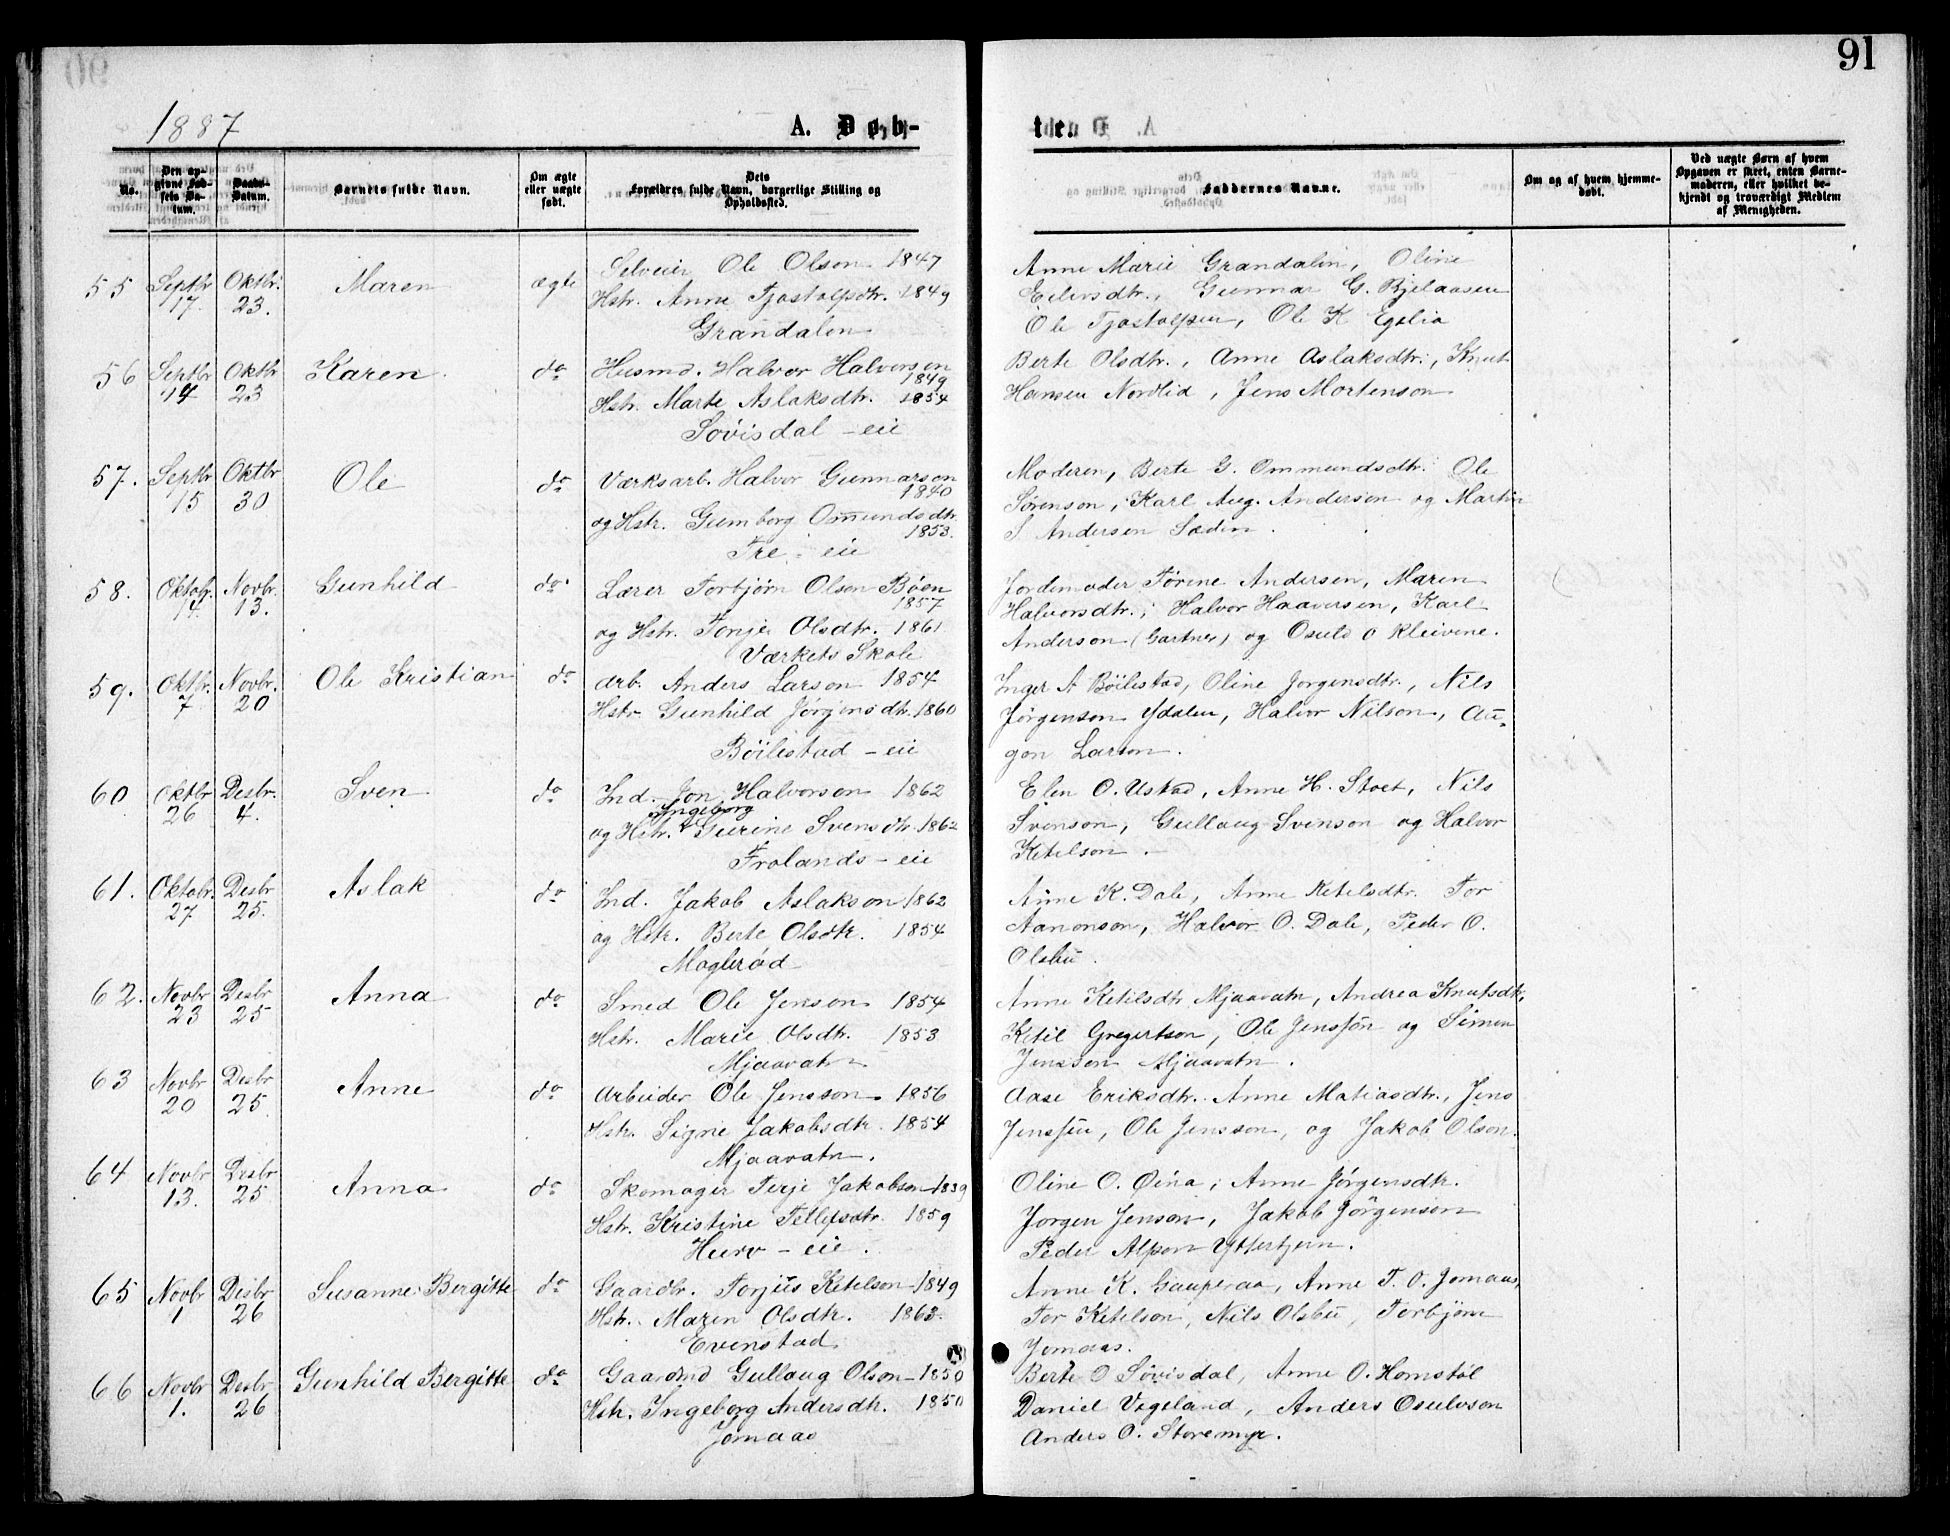 91
1887
A. Døb-
te.
No.
Den op-
givne Fød-
sels Da-
tum.
Daabs-
Datum.
Barnets fulde Navn.
Om ægte
eller uægte
født.
Dets
Forældres fulde Navn, borgerlige Stilling og
Opholdssted.
Faddernes Navne.
Om og af hvem hjemme-
døbt.
Ved uægte Børn af hvem
Opgaven er skeet, enten Barne-
moderen, eller hvilket be-
kjendt og troværdigt Medlem
af Menigheden.
55 Septbr 17. Oktbr. 23. Maren ægte
Selveier Ole Olson 1847
Hstr. Anne Tjostolfsdtr. 1849
Grandalen
Anne Marie Grandalen, Oline
Eilevsdtr., Gunnar G. Bjelaasen
Ole Tjostolfsen, Ole K Egelia
56 Septbr 14 Oktbr 23 Karen do
Husmd. Halvor Halvorson
1849
Hstr. Marte Aslaksdtr. 1854
Sövisdal - eie
Berte Olsdtr., Anne Aslaksdtr., Knut
Hansen Nordlid, Jens Mortenson
57. Septbr 15 Oktbr 30 Ole do
Værksarb. Halvor Gunnarson
1840
og Hstr. Gumborg Omundsdtr.
1853.
Tre - eie
Moderen, Berte G. Ommundsdtr. Ole
Sørenson, Karl Aug. Anderson og Martin
S Andersen Sædin.
58. Oktobr. 14. Novbr. 13. Gunhild do
Lærer Torbjörn Olson Böen
1857
og Hstr. Tonje Olsdtr. 1861
Værkets Skole
Jordemoder Törine Andersen, Maren
Halvorsdtr., Halvor Haaversen, Karl
Anderson (Gartner) og Osuld O Kleivene.
59. Oktbr. 7 Novbr. 20 Ole Kristian do
Arb. Anders Larson 1854
Hstr Gunhild Jörgensdtr. 1860
Böilestad - eie
Inger A Böilestad, Oline Jorgensdtr., Nils
Jörgenson Ydalen, Halvor Nilson, Au-
gon Larson.
60 Oktbr 26 Desbr. 4. Sven do
Ind. Jon Halvorson 1862
Ingeborg
og Hstr. Gurine Svensdtr. 1862
Frolands - eie
Elen O. Ustad, Anne H. Stoet, Nils
Svenson, Gullaug Svenson og Halvor
Ketelson.
61. Oktobr. 27 Desbr 25. Aslak do
Ind. Jakob Aslakson 1862
og Hstr. Berte Olsdtr. 1854
Moglerød
Anne K. Dale, Anne Ketelsdtr. Tor
Aanonson, Halvor O. Dale, Peder O.
Olsbu.
62. Novbr 23 Desbr 25 Anna do
Smed Ole Jenson 1854
Hstr. Marie Olsdtr. 1853
Mjaavatn
Anne Ketilsdtr Mjaavatn, Andrea Knutsdtr.
Ketil Gregertson, Ole Jenssön og Simen
Jensson Mjaavatn.
63 Novbr 20 Desbr 25. Anne do
Arbeider Ole Jensson 1856
Hstr. Signe Jakobsdtr. 1854
Mjaavatn.
Aase Eriksdtr. Anne Matiasdtr., Jens
Jenssen, Ole Jensson, og Jakob Olson.
64 Novbr 13. Desbr 25 Anna do
Skomager Terje Jakobson 1839
Hstr. Kristine Tellefsdtr. 1859
Hurv - eie.
Oline O. Öina, Anne Jörgensdtr.
Jorgen Jenson, Jakob Jörgenson
Peder Alfson Yttertjern.
65 Novbr 1 Desbr 26 Susanne Bergitte do
Gaardbr. Torjus Ketelson 1849
Hstr. Maren Olsdtr. 1863.
Evenstad
Anne K. Gauperaa, Anne T. O. Jomaas,
Tor Ketelson, Nils Olsbu, Torbjörn
Jomaas.
66 Novbr 1. Desbr 26 Gunhild Bergitte do
Gaardmd Gullaug Olson 1850
Hstr. Ingeborg Andersdtr. 1850
Jomaas
Berte O Sövisdal, Anne O. Homstöl
Daniel Vegeland, Anders Osulvson
Anders O. Storemyr.